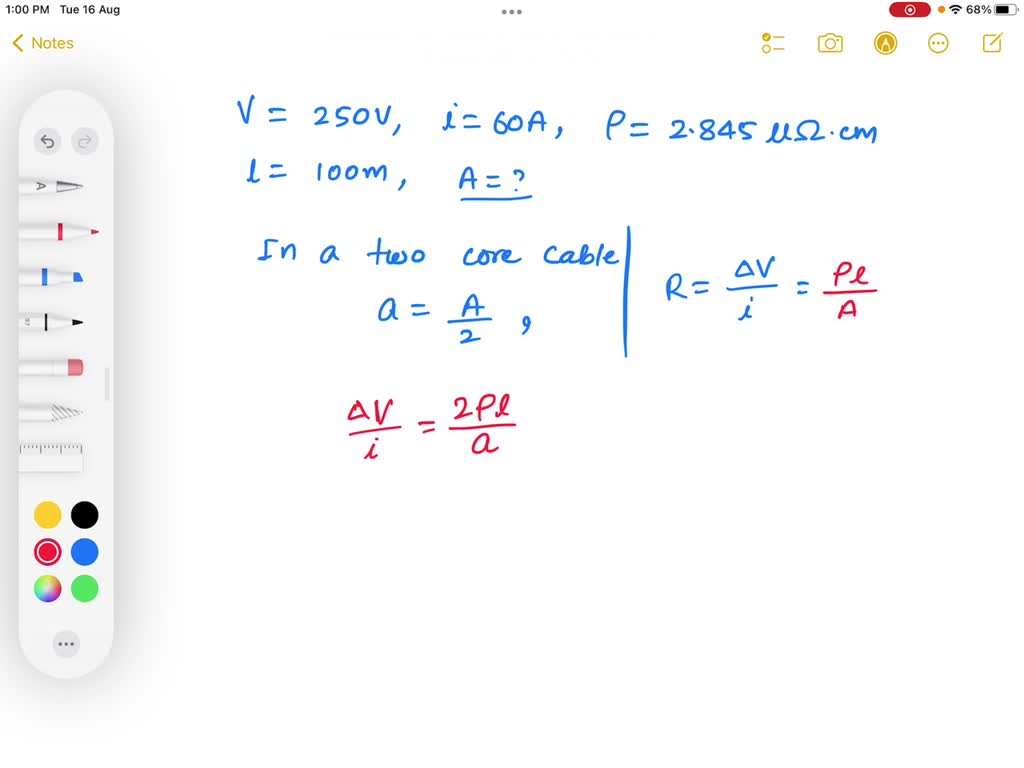 1:00 PM Tue 16 Aug
68%
Notes
V = 250V, i = 60A, ρ = 2.845 μΩ.cm
l = 100m, A = ?
In a two core cable
a = A/2 ,
R = ΔV/i = ρl/A
ΔV/i = 2ρl/a
A
97